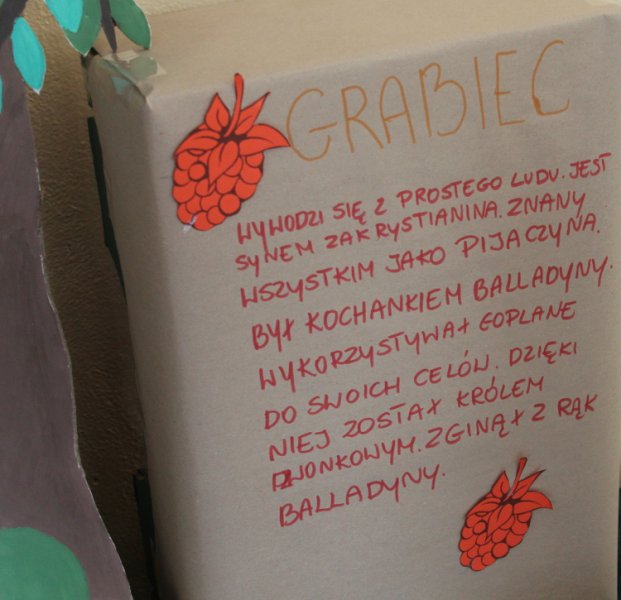 GRABIEC
WYWODZI SIĘ Z PROSTEGO LUDU. JEST
SYNEM ZAKRYSTIANINA. ZNANY
WSZYSTKIM JAKO PIJACZYNA.
BYŁ KOCHANKIEM BALLADYNY.
WYKORZYSTYWAŁ GOPLANE
DO SWOICH CELÓW. DZIĘKI
NIEJ ZOSTAŁ KRÓLEM
DZWONKOWYM. ZGINĄŁ Z RĄK
BALLADYNY.